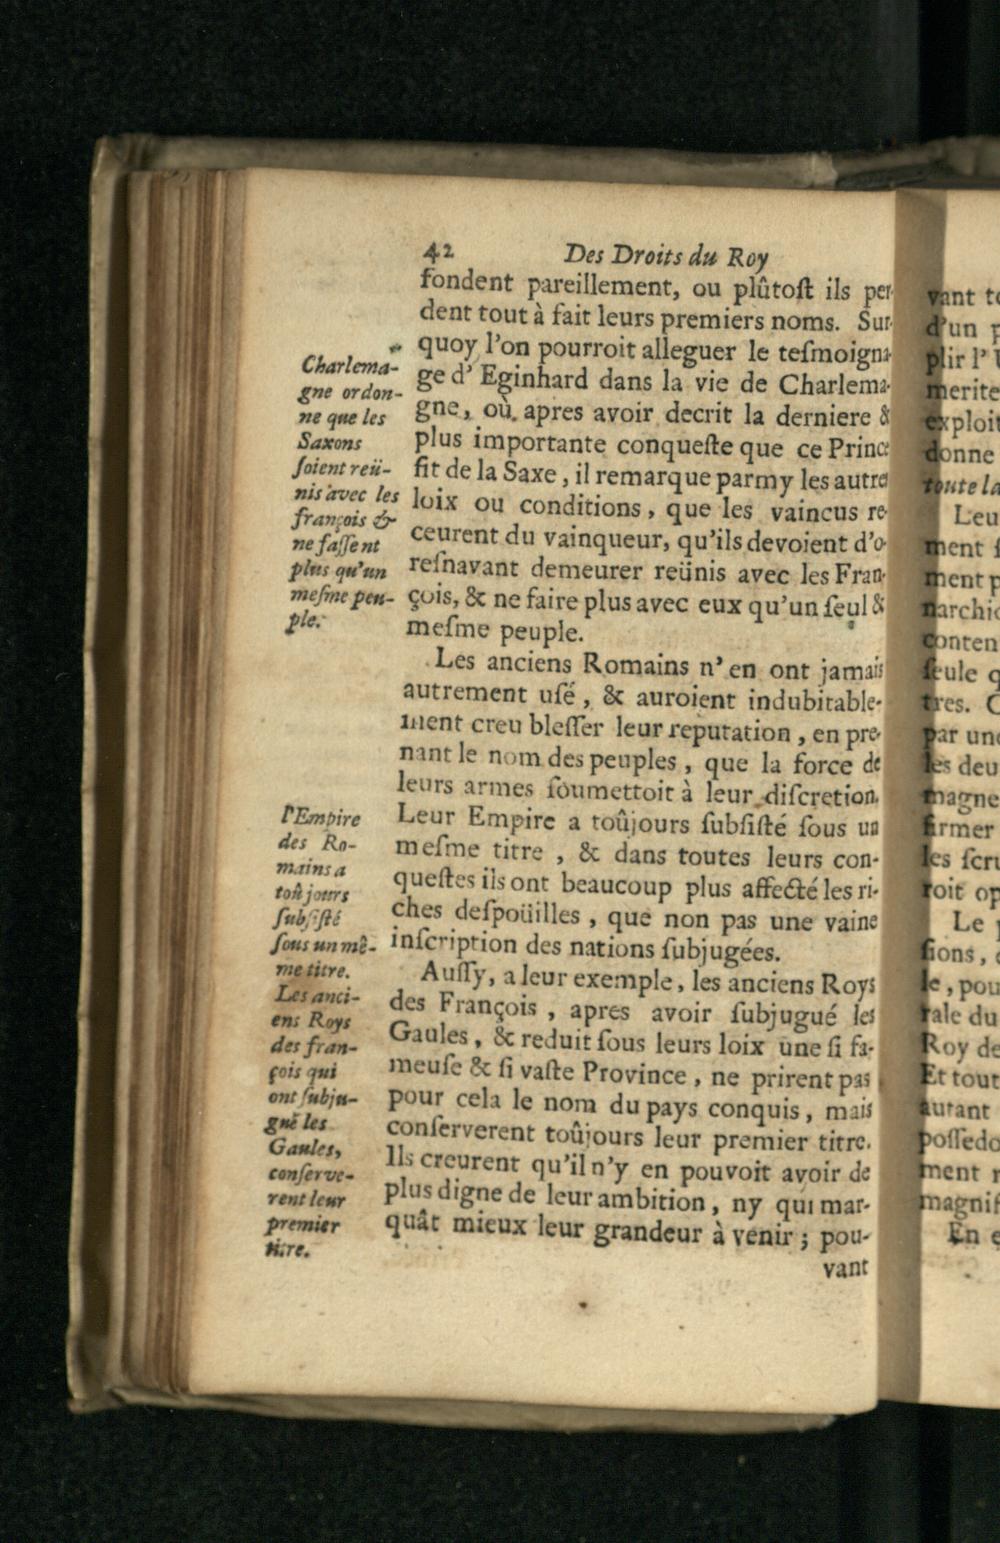 42 Des Droits du Roy
fondent pareillement, ou plûtoſt ils per-
dent tout à fait leurs premiers noms. Sur-
quoy l'on pourroit alleguer le teſmoigna-
ge d' Eginhard dans la vie de Charlema-
gne, où apres avoir decrit la derniere &
plus importante conqueſte que ce Prince
fit de la Saxe, il remarque parmy les autres
loix ou conditions, que les vaincus re-
ceurent du vainqueur, qu'ils devoient d'o-
reſnavant demeurer reünis avec les Fran-
çois, & ne faire plus avec eux qu'un ſeul &
meſme peuple.
Les anciens Romains n'en ont jamais
autrement uſé, & auroient indubitable-
ment creu bleſſer leur reputation, en pre-
nant le nom des peuples, que la force de
leurs armes ſoumettoit à leur diſcretion.
Leur Empire a toûjours ſubſiſté ſous un
meſme titre, & dans toutes leurs con-
queſtes ils ont beaucoup plus affecté les ri-
ches deſpoüilles, que non pas une vaine
inſcription des nations ſubjugées.
Auſſy, a leur exemple, les anciens Roys
des François, apres avoir ſubjugué les
Gaules, & reduit ſous leurs loix une ſi fa-
meuſe & ſi vaſte Province, ne prirent pas
pour cela le nom du pays conquis, mais
conſerverent toûjours leur premier titre.
Ils creurent qu'il n'y en pouvoit avoir de
plus digne de leur ambition, ny qui mar-
quât mieux leur grandeur à venir; pou-
vant
Charlema-
gne ordon-
ne que les
Saxons
ſoient reü-
nis avec les
françois &
ne faſſent
plus qu'un
meſme peu-
ple.
l'Empire
des Ro-
mains a
toûjours
ſubſiſté
ſous un mê-
me titre.
Les anci-
ens Roys
des fran-
çois qui
ont ſubju-
gué les
Gaules,
conſerve-
rent leur
premier
titre.
vant
d'un
plir l'
merite
exploit
donne
toute la
Leu
ment
ment
narchi
conten
ſeule
tres.
par un
les deu
magne
firmer
les ſcru
roit
Le
ſions,
le, pou
rale du
Roy de
Et tout
autant
poſſedo
ment
magnif
En